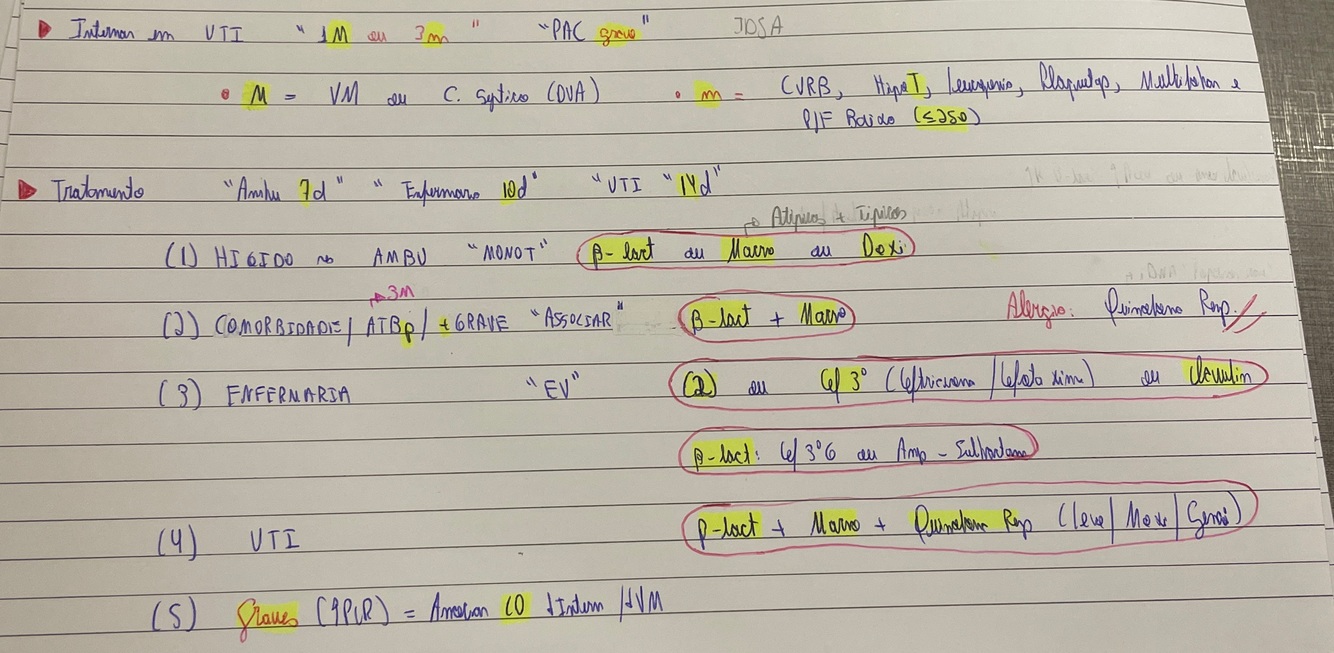 Internar em UTI "1M ou 3m" "PAC grave" IDSA
• M = VM ou C. Séptico (DVA) • m = CURB, HipoT, Leucopenia, Plaquetop, Multilobar e
P/F Baixo (≤250)
Tratamento "Ambu 7d" "Enfermaria 10d" "UTI "14d"
→ Atípicos + Típicos
(1) HÍGIDO no AMBU "MONOT" β-lact ou Macro ou Doxi
→3M
(2) COMORBIDADE/ ATBp/ +GRAVE "ASSOCIAR" β-lact + Macro Alergia: Quinolona Resp.
(3) ENFERMARIA "EV" (2) ou Cef 3° (Ceftriaxona/Cefotaxima) ou Clavulin
β-lact: Cef 3°G ou Amp-Sulbactam
(4) UTI β-lact + Macro + Quinolona Resp (Levo/Moxi/Gemi)
(5) Graves (↑PCR) = Associar CO ↓Intern /↓VM